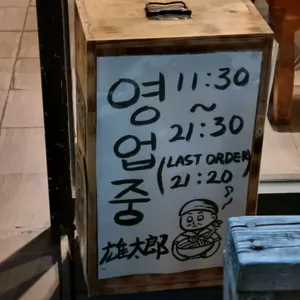 영업중
11:30
~
21:30
(LAST ORDER
21:20)
雄太郎